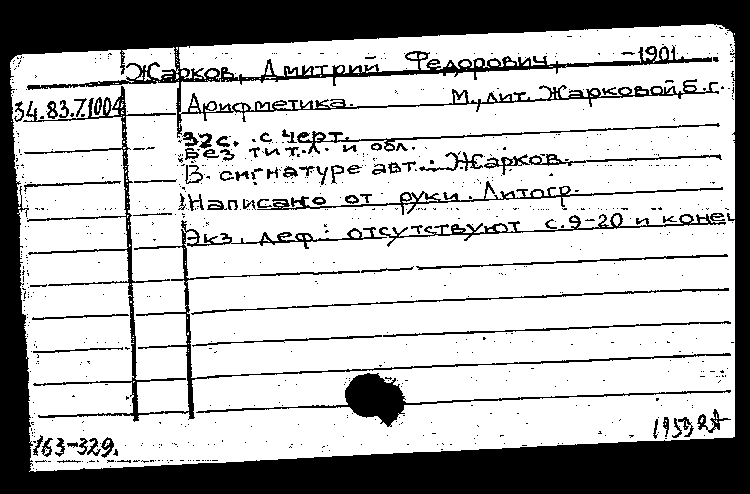 Жарков, Дмитрий Федорович, -1901.
34.83.7.1004 Арифметика. М., лит. Жарковой, б.г.
32с. с черт.
Без тит.л. и обл.
В сигнатуре авт.: Жарков.
Написано от руки. Литогр.
Экз. деф.: отсутствуют с.9-20 и конец
163-329.
1953